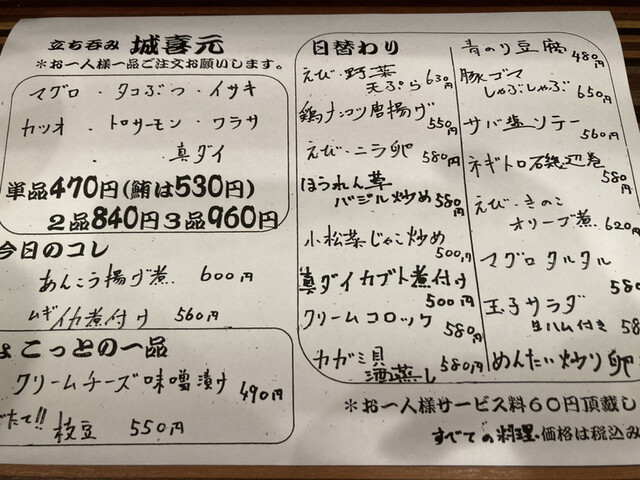 立ち呑み 城喜元
*お一人様一品ご注文お願いします。
マグロ・タコぶつ・イサキ
カツオ・トロサーモン・ワラサ
・真ダイ
単品470円(鮪は530円)
2品840円3品960円
今日のコレ
あんこう揚げ煮 600円
ムギイカ煮付け 560円
ょこっとの一品
クリームチーズ味噌漬け 490円
でたて!!
枝豆 550円
日替わり
えび・野菜天ぷら 630円
鶏ナンコツ唐揚げ 550円
えび・ニラ卵 580円
ほうれん草
バジル炒め 580円
小松菜じゃこ炒め 500円
真ダイカブト煮付け 500円
クリームコロッケ 580円
カガミ貝
酒蒸し 580円
青のり豆腐 480円
豚ゴマ
しゃぶしゃぶ 650円
サバ塩ソテー 560円
ネギトロ磯辺巻 580円
えび・きのこ
オリーブ煮 620円
マグロタルタル 580
玉子サラダ
生ハム付き 580
めんたい炒り卵
*お一人様サービス料60円頂戴し
すべての料理・価格は税込み